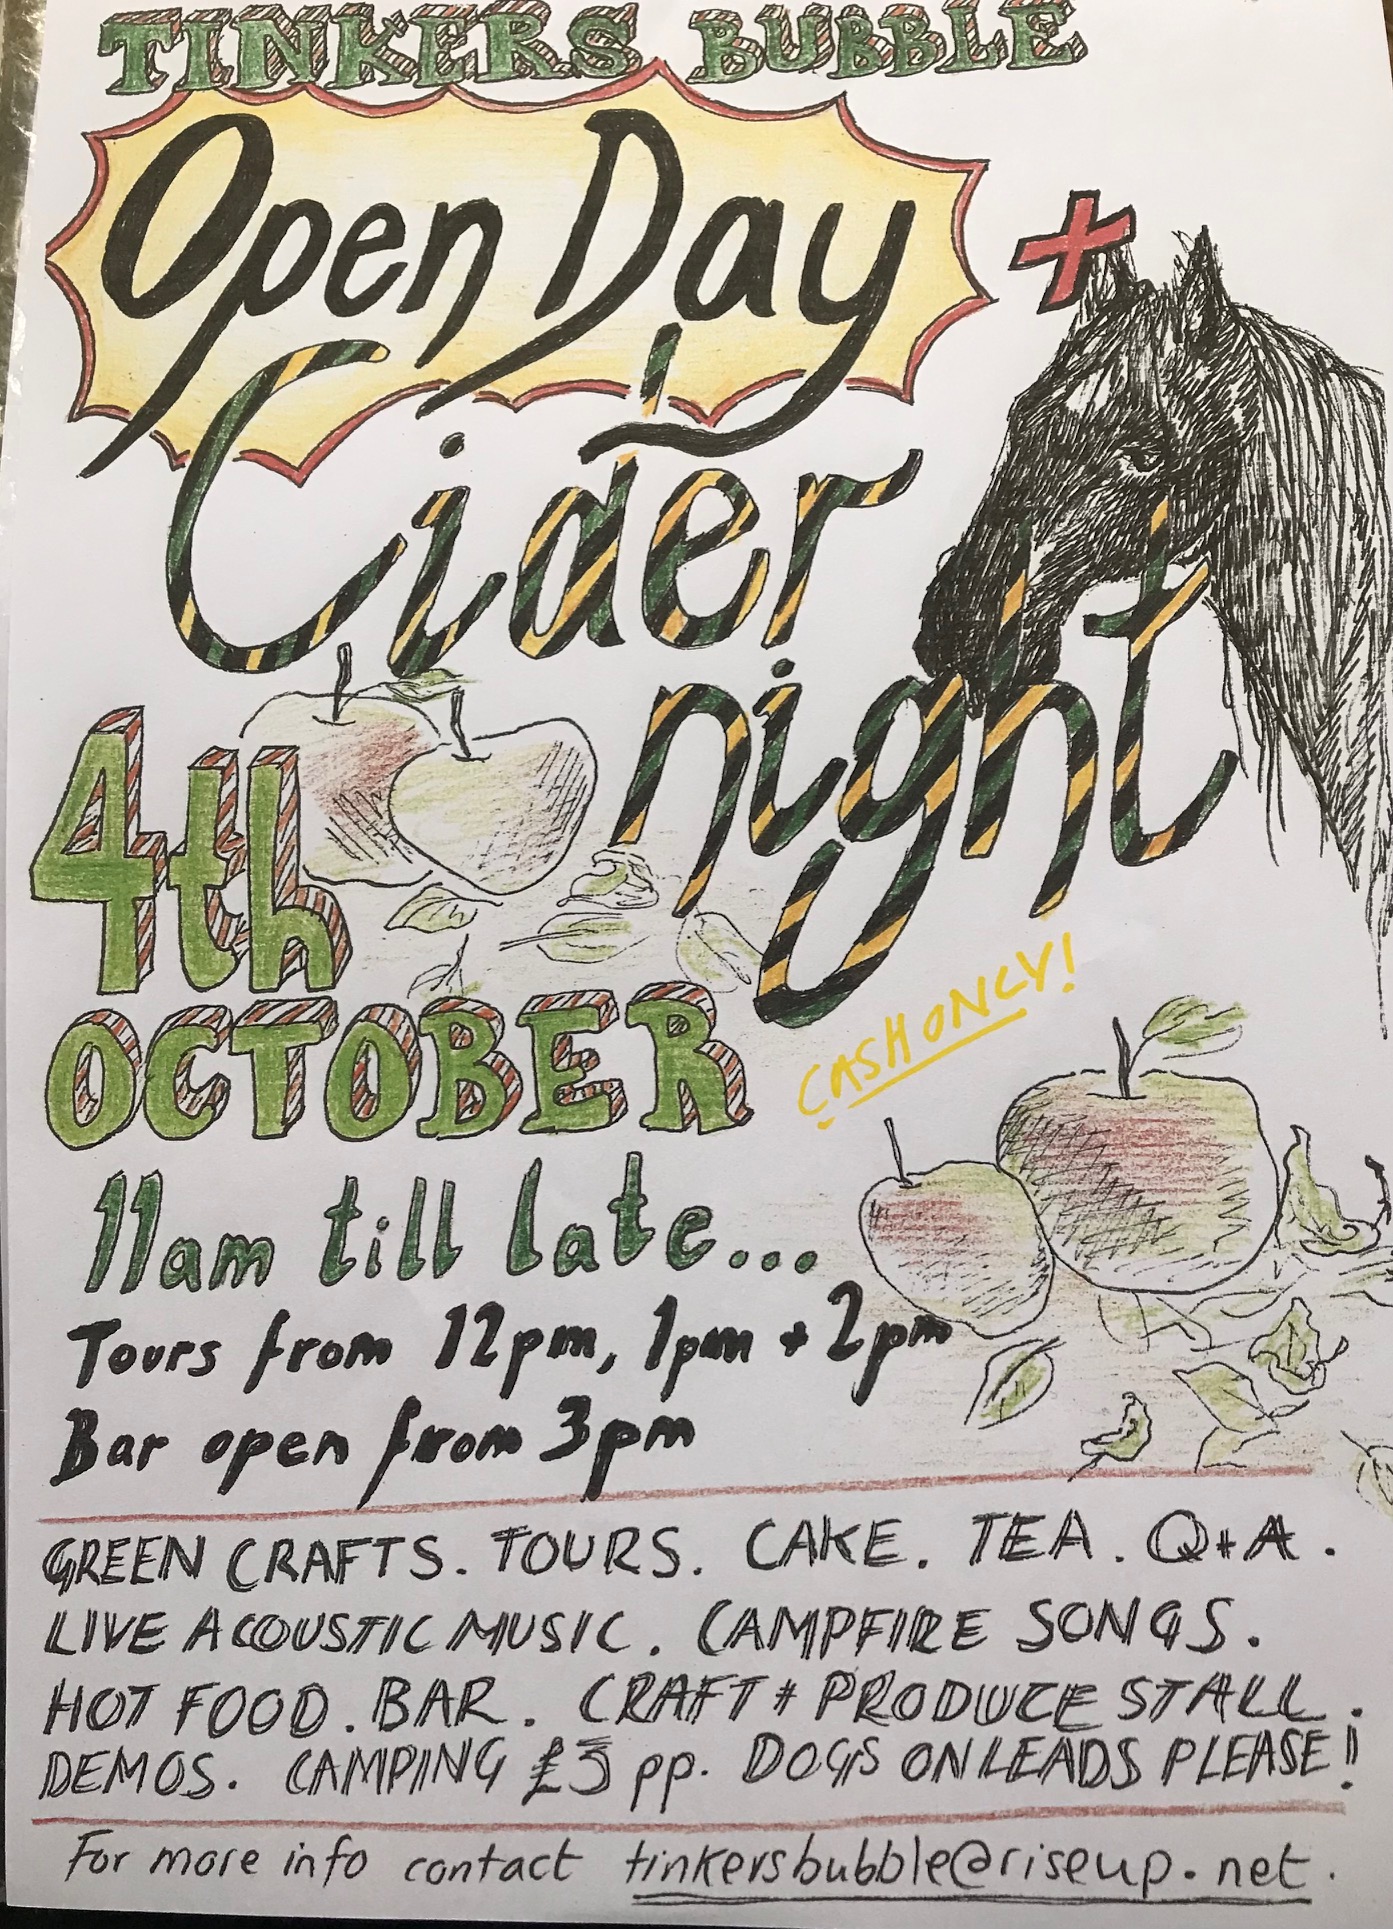 TINKERS BUBBLE
Open Day +
Cider
night
4th
OCTOBER
CASH ONLY!
11am till late...
Tours from 12pm, 1pm + 2pm
Bar open from 3pm
GREEN CRAFTS. TOURS. CAKE. TEA. Q+A.
LIVE ACOUSTIC MUSIC. CAMPFIRE SONGS.
HOT FOOD. BAR. CRAFT + PRODUCE STALL.
DEMOS. CAMPING £5 pp. DOGS ON LEADS PLEASE!
For more info contact tinkersbubble@riseup.net.